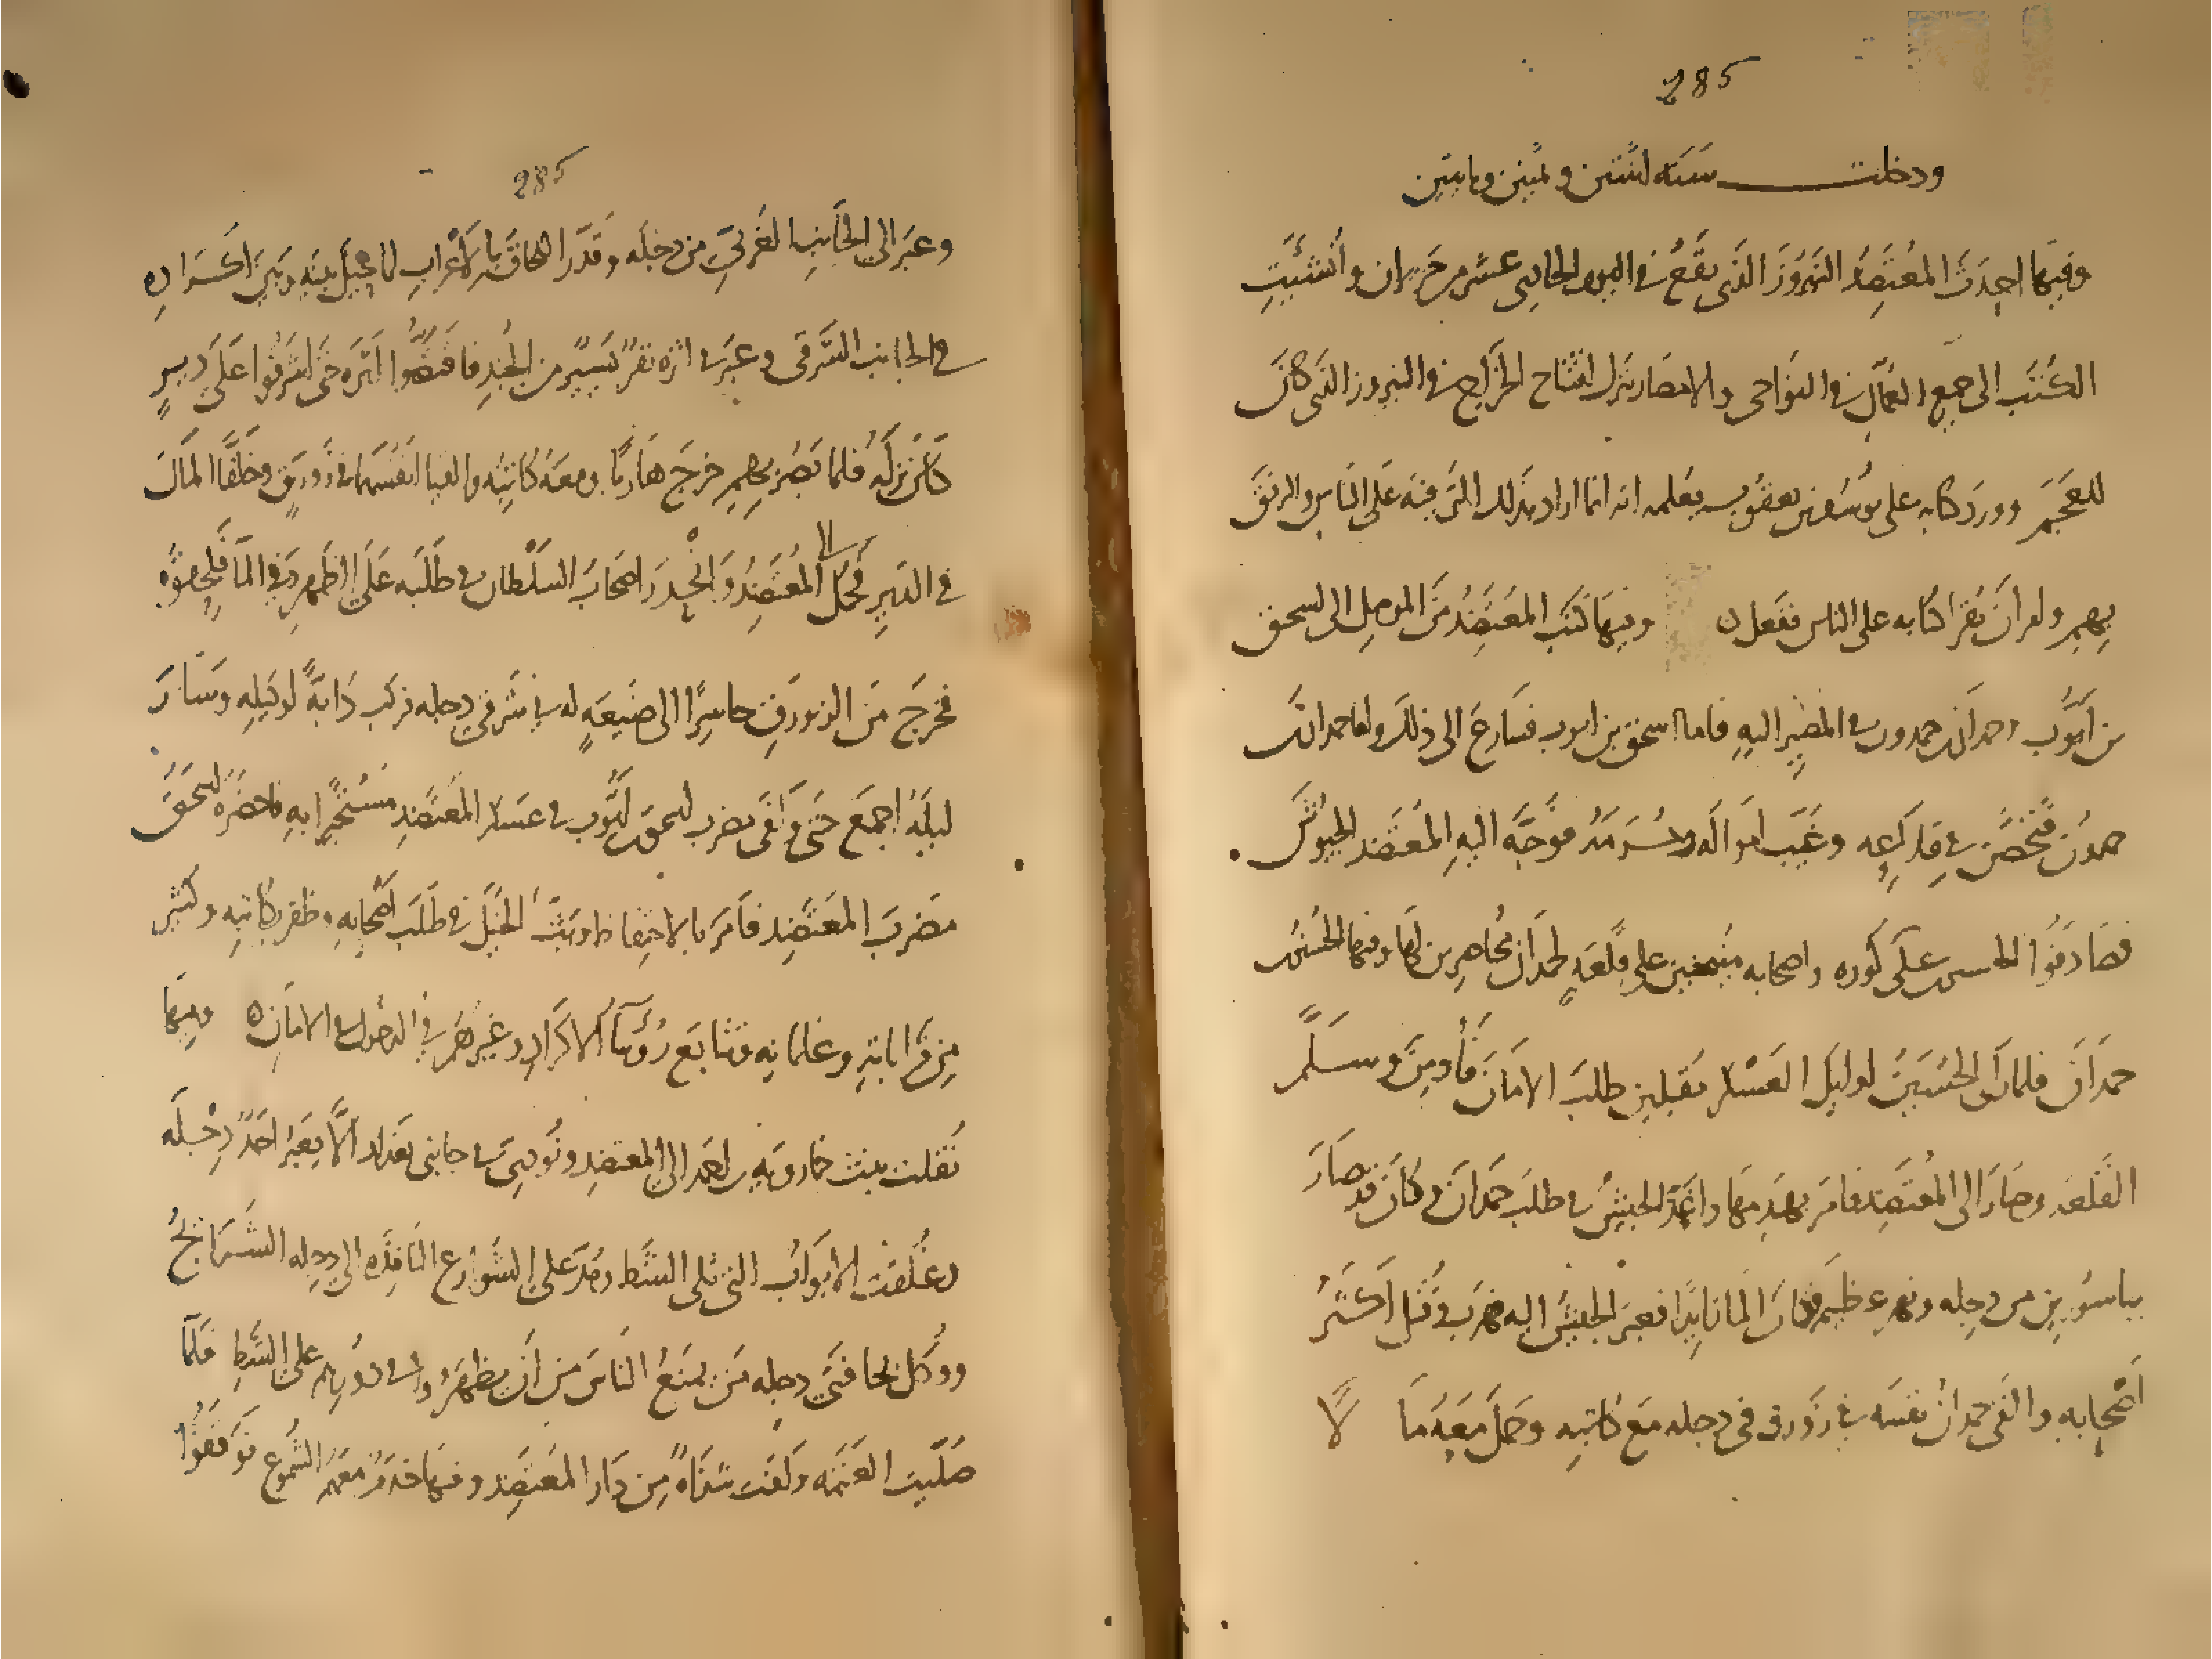 285
ودخلت سنه اثنتين وثمنين ومايتين
وفيها احدث المعتضد النيروز الذى يقع فى اليوم الحادى عشر من حزيران وانشئت
الكتب الى جميع العمال فى النواحى والامصار بترك افتتاح الخراج فى النيروز الذى كان
للعجم وورد كتابه على يوسف بن يعقوب يعلمه انه انما اراد بذلك الترفيه على الناس والرفق
بهم وامر ان يقرا كتابه على الناس ففعل ن وفيها كتب المعتضد من الموصل الى اسحق
بن ايوب وحمدان بن حمدون فى المصير اليه فاما اسحق بن ايوب فسارع الى ذلك واما حمدان بن
حمدون فتحصن فى قلاعه وغيب امواله وحرمه فوجه اليه المعتضد الجيوش
فصادفوا الحسن بن على كوره واصحابه منيخين على قلعه لحمدان وفيها الحسين بن
حمدان فلما راى الحسين اوايل العسكر مقبلين طلب الامان فاومن وسلم
القلعه وصار الى المعتضد فامر بهدمها واغذ الجيش فى طلب حمدان وكان قد صار
بباسورين من دجله ونهر عظيم وكان الما زايدا فعبر الجيش اليه فهرب وقتل اكثر
اصحابه والقى حمدان نفسه فى زورق فى دجله مع كاتبه وحمل معه مالا
285
وعبر الى الجانب الغربى من دجله وقدر اللحاق بالاعراب لما حيل بينه وبين اكراده
فى الجانب الشرقى وعبر فى اثره نفر يسير من الجند فاقتصوا اثره حتى اشرفوا على دير
كان نزله فلما بصر بهم خرج هاربا ومعه كاتبه والقيا انفسهما فى زورق وخلفا المال
فى الدير فحمل الى المعتضد وانحدر اصحاب السلطان فى طلبه على الظهر وفى الما فلحقوه
فخرج من الزورق حاسرا الى ضيعه له فى شرقى دجله فركب دابة لوكيله وسار
ليله اجمع حتى وافى مضرب اسحق بن ايوب فى عسكر المعتضد مستجيرا به فاحضره اسحق
مضرب المعتضد فامر بالاحتفاظ به وبث الخيل فى طلب اصحابه وظفر بكاتبه وكثير
من قراباته وغلمانه وتتابع رؤسا الاكراد وغيرهم فى الدخول فى الامان ه وفيها
نقلت بنت خمارويه بن احمد الى المعتضد ونودى فى جانبى بغداد الا يعبر احد دجله
وغلقت الابواب التى تلى الشط ومد على الشوارع النافذه الى دجله الشرايج
ووكل بحافتى دجله من يمنع الناس من ان يظهروا فى دورهم على الشط فلما
صليت العتمه وافت شذاة من دار المعتضد وفيها خدم معهم الشموع فوقفوا